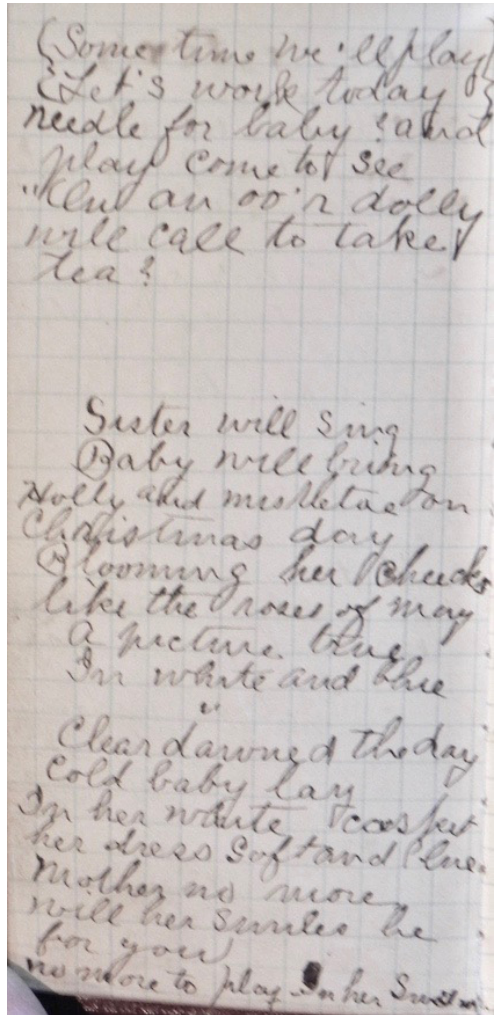 {Sometime we'll play}
{Let's work today}
needle for baby & and
play come to see
an oo'r dolly
will call to take
tea?
Sister will sing
Baby will bring
Holly and mistletoe on
Christmas day
Blooming her cheeks
like the roses of may
A picture true
In white and blue
"
Clear dawned the day
Cold baby lay
In her white casket
her dress soft and blue
Mother no more
will her smiles be
for you
no more to play In her